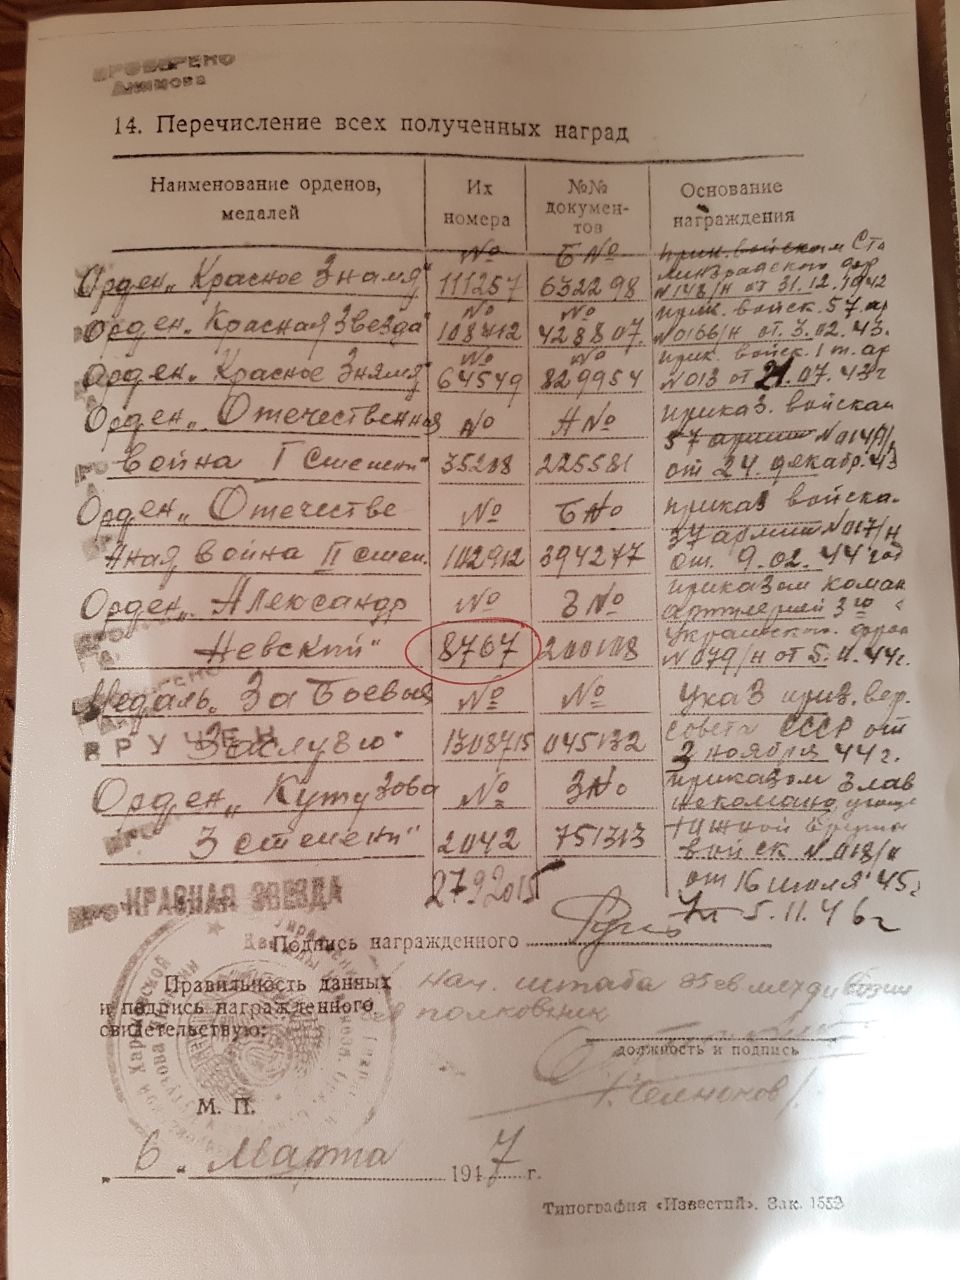 ПРОВЕРЕНО
Акимова
14. Перечисление всех полученных наград
Наименование орденов, медалей
Их номера
№№ документов
Основание награждения
№ Б№ прик. войскам Ста
Орден „Красное Знамя" 111257 632298 линградского фр
№148/н от 31.12.1942
№ № прик. войск. 57 ар
Орден „Красная Звезда" 108412 428807. №0166/н от 3.02.43.
№ № прик. войск. 1 т. ар
Орден „Красное Знамя" 64549 829954 №013 от 21.07.43 г
Орден „Отечественная № А№ приказ. войскам
57 армии №014/
война I степени" 35218 225581 от 24. декабр. 43
Орден „Отечестве № Б№ приказ войска.
37 армии №017/н
ная война II степ. 102912 394277 от. 9.02.44 год
Орден „Александр № З№ приказом коман
артилерией 3го
Невский" 8767 200108 Украинск. фрон
№079/н от 5.11.44г.
Медаль „За Боевые № № Указ през. вер.
совета СССР от
ВРУЧЕН
Заслуги" 1308715 045132 3 ноября 44 г.
Орден „Кутузова № З№ приказом Глав
3 степени" 2042 751313 Южной группы
войск №018/н
27.9.2015 от 16 июля 45 г
КРАСНАЯ ЗВЕЗДА 5.11.46 г
Подпись награжденного
Правильность данных Нач. штаба
и подпись награжденного полковник
свидетельствую:
должность и подпись
М. П.
„6" Марта 1947 г.
Типография «Известий». Зак. 1553